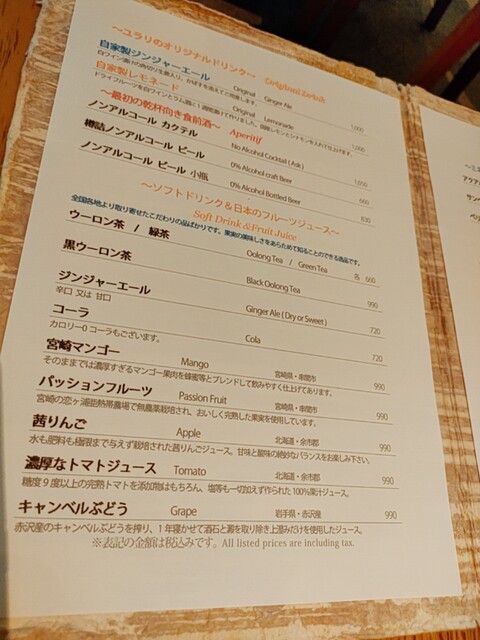 ～ユラリのオリジナルドリンク～ Original Drink
自家製ジンジャーエール Original Ginger Ale 1,000
自家製レモネード Original Lemonade 1,000
～最初の乾杯向き食前酒～ Aperitif
ノンアルコール カクテル No Alcohol Cocktail ( Ask ) 1,050
樽詰ノンアルコール ビール 0% Alcohol craft Beer 660
ノンアルコール ビール 小瓶 0% Alcohol Bottled Beer 830
～ソフトドリンク＆日本のフルーツジュース～
Soft Drink &Fruit Juice
全国各地より取り寄せたこだわりの品ばかりです。果実の美味しさをあらためて知ることのできる逸品です。
ウーロン茶 / 緑茶 Oolong Tea / Green Tea 各 660
黒ウーロン茶 Black Oolong Tea 990
ジンジャーエール Ginger Ale ( Dry or Sweet ) 720
辛口 又は 甘口
コーラ Cola 720
カロリー0 コーラもございます。
宮崎マンゴー Mango 宮崎県・串間市 990
そのままでは濃厚すぎるマンゴー果肉を蜂蜜等とブレンドして飲みやすく仕上げてあります。
パッションフルーツ Passion Fruit 宮崎県・串間市 990
宮崎の恋ヶ浦臣熱帯農場で無農薬栽培され、おいしく完熟した果実を使用しています。
茜りんご Apple 北海道・余市郡 990
水も肥料も極限まで与えず栽培された茜りんごジュース。甘味と酸味の絶妙なバランスをお楽しみ下さい。
濃厚なトマトジュース Tomato 北海道・余市郡 990
糖度９度以上の完熟トマトを添加物はもちろん、塩等も一切加えず作られた 100%果汁ジュース。
キャンベルぶどう Grape 岩手県・赤沢産 990
赤沢産のキャンベルぶどうを搾り、１年寝かせて酒石と澱を取り除き上澄みだけを使用したジュース。
※表記の金額は税込みです。All listed prices are including tax.